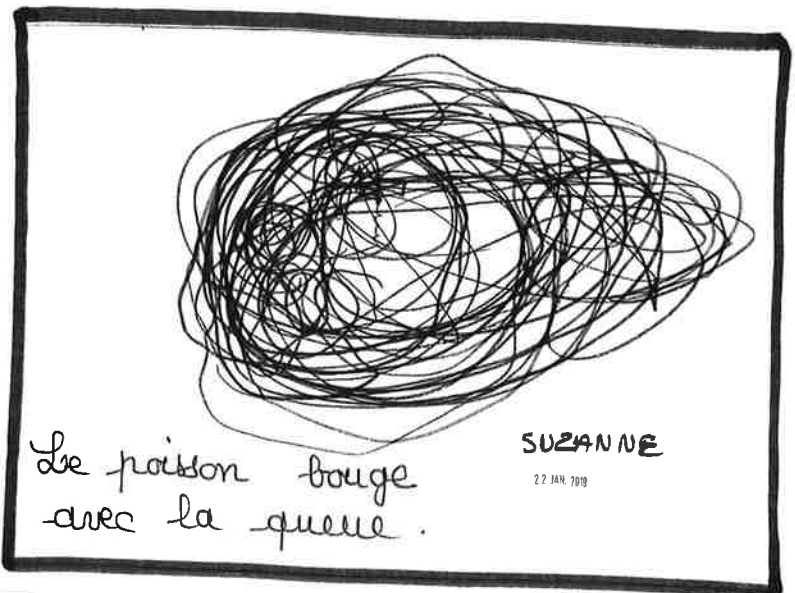 Le poisson bouge
avec la queue.
SUZANNE
22 JAN. 2019